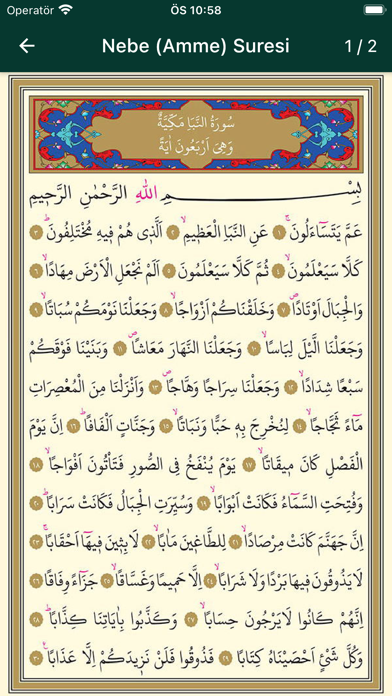 Operatör ÖS 10:58
Nebe (Amme) Suresi 1 / 2
سُورَةُ النَّبَاِ مَكِّيَّةٌ
وَهِىَ اَرْبَعُونَ اٰيَةً
بِسْمِ اللهِ الرَّحْمٰنِ الرَّحٖيمِ
عَمَّ يَتَسَٓاءَلُونَۚ ﴿١﴾ عَنِ النَّبَأِ الْعَظٖيمِۙ ﴿٢﴾ اَلَّذٖى هُمْ فٖيهِ مُخْتَلِفُونَۜ ﴿٣﴾
كَلَّا سَيَعْلَمُونَۙ ﴿٤﴾ ثُمَّ كَلَّا سَيَعْلَمُونَ ﴿٥﴾ اَلَمْ نَجْعَلِ الْاَرْضَ مِهَادًاۙ ﴿٦﴾
وَالْجِبَالَ اَوْتَادًاۖ ﴿٧﴾ وَخَلَقْنَاكُمْ اَزْوَاجًاۙ ﴿٨﴾ وَجَعَلْنَا نَوْمَكُمْ سُبَاتًاۙ ﴿٩﴾
وَجَعَلْنَا الَّيْلَ لِبَاسًاۙ ﴿١٠﴾ وَجَعَلْنَا النَّهَارَ مَعَاشًاۖ ﴿١١﴾ وَبَنَيْنَا فَوْقَكُمْ
سَبْعًا شِدَادًاۙ ﴿١٢﴾ وَجَعَلْنَا سِرَاجًا وَهَّاجًاۖ ﴿١٣﴾ وَاَنْزَلْنَا مِنَ الْمُعْصِرَاتِ
مَٓاءً ثَجَّاجًاۙ ﴿١٤﴾ لِنُخْرِجَ بِهٖ حَبًّا وَنَبَاتًاۙ ﴿١٥﴾ وَجَنَّاتٍ اَلْفَافًاۜ ﴿١٦﴾ اِنَّ يَوْمَ
الْفَصْلِ كَانَ مٖيقَاتًاۙ ﴿١٧﴾ يَوْمَ يُنْفَخُ فِى الصُّورِ فَتَأْتُونَ اَفْوَاجًاۙ ﴿١٨﴾
وَفُتِحَتِ السَّمَٓاءُ فَكَانَتْ اَبْوَابًاۙ ﴿١٩﴾ وَسُيِّرَتِ الْجِبَالُ فَكَانَتْ سَرَابًاۜ ﴿٢٠﴾
اِنَّ جَهَنَّمَ كَانَتْ مِرْصَادًاۙ ﴿٢١﴾ لِلطَّاغٖينَ مَاٰبًاۙ ﴿٢٢﴾ لَابِثٖينَ فٖيهَٓا اَحْقَابًاۚ ﴿٢٣﴾
لَا يَذُوقُونَ فٖيهَا بَرْدًا وَلَا شَرَابًاۙ ﴿٢٤﴾ اِلَّا حَمٖيمًا وَغَسَّاقًاۙ ﴿٢٥﴾ جَزَٓاءً وِفَاقًاۜ ﴿٢٦﴾
اِنَّهُمْ كَانُوا لَا يَرْجُونَ حِسَابًاۙ ﴿٢٧﴾ وَكَذَّبُوا بِاٰيَاتِنَا كِذَّابًاۜ ﴿٢٨﴾
وَكُلَّ شَیْءٍ اَحْصَيْنَاهُ كِتَابًاۙ ﴿٢٩﴾ فَذُوقُوا فَلَنْ نَزٖيدَكُمْ اِلَّا عَذَابًاۜ ﴿٣٠﴾